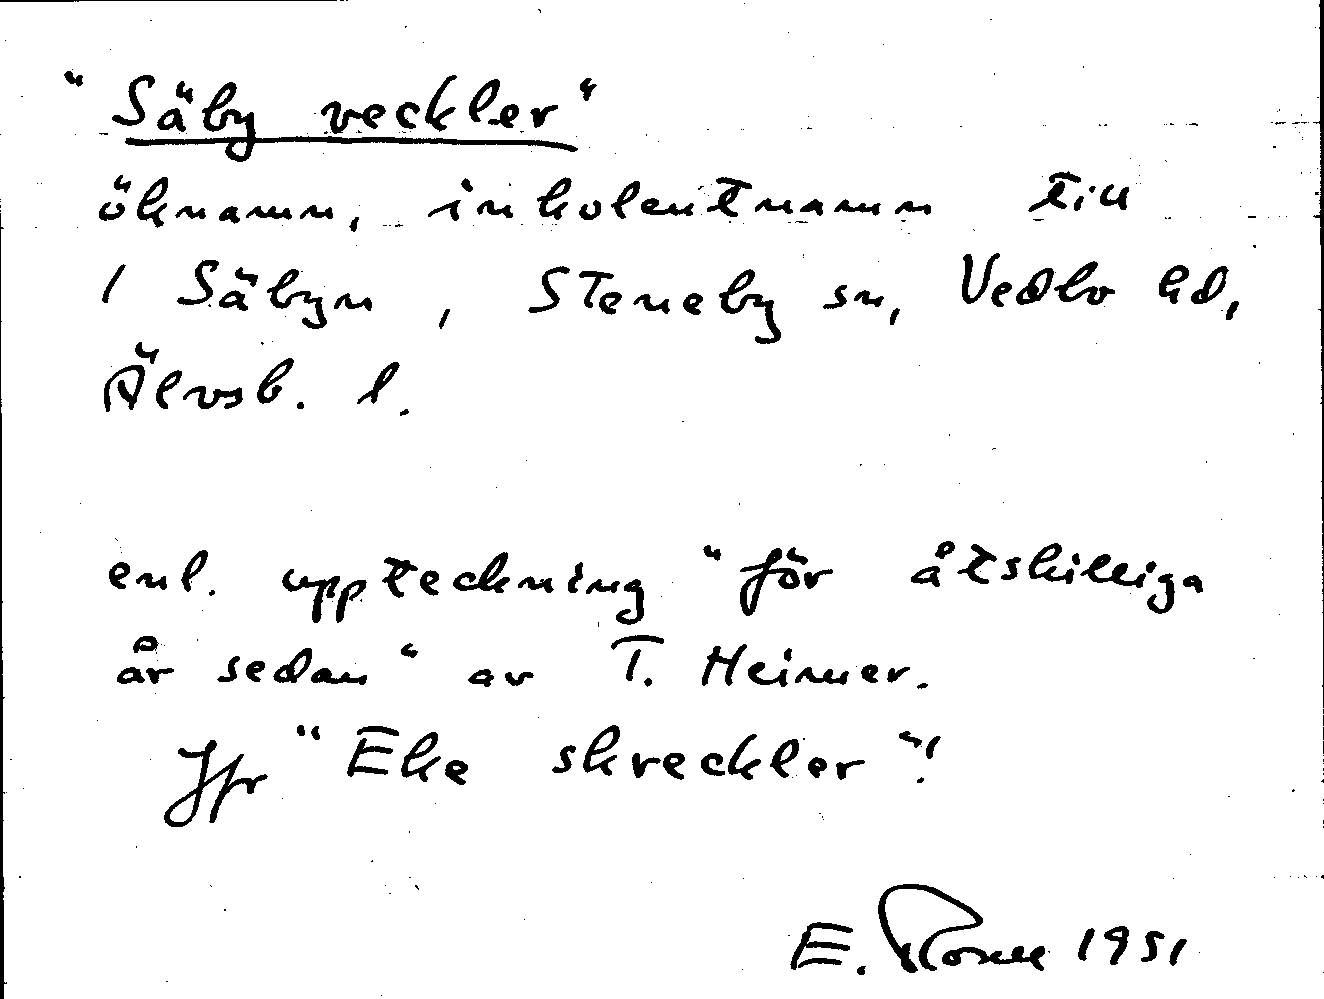 "Säby veckler"
öknamn, inkolentnamn till
1 Säbyn, Steneby sn, Vedbo hd,
Älvsb. l.
enl. uppteckning "för åtskilliga
år sedan" av T. Heimer.
Jfr "Eke skreckler"!
E. Rosell 1951